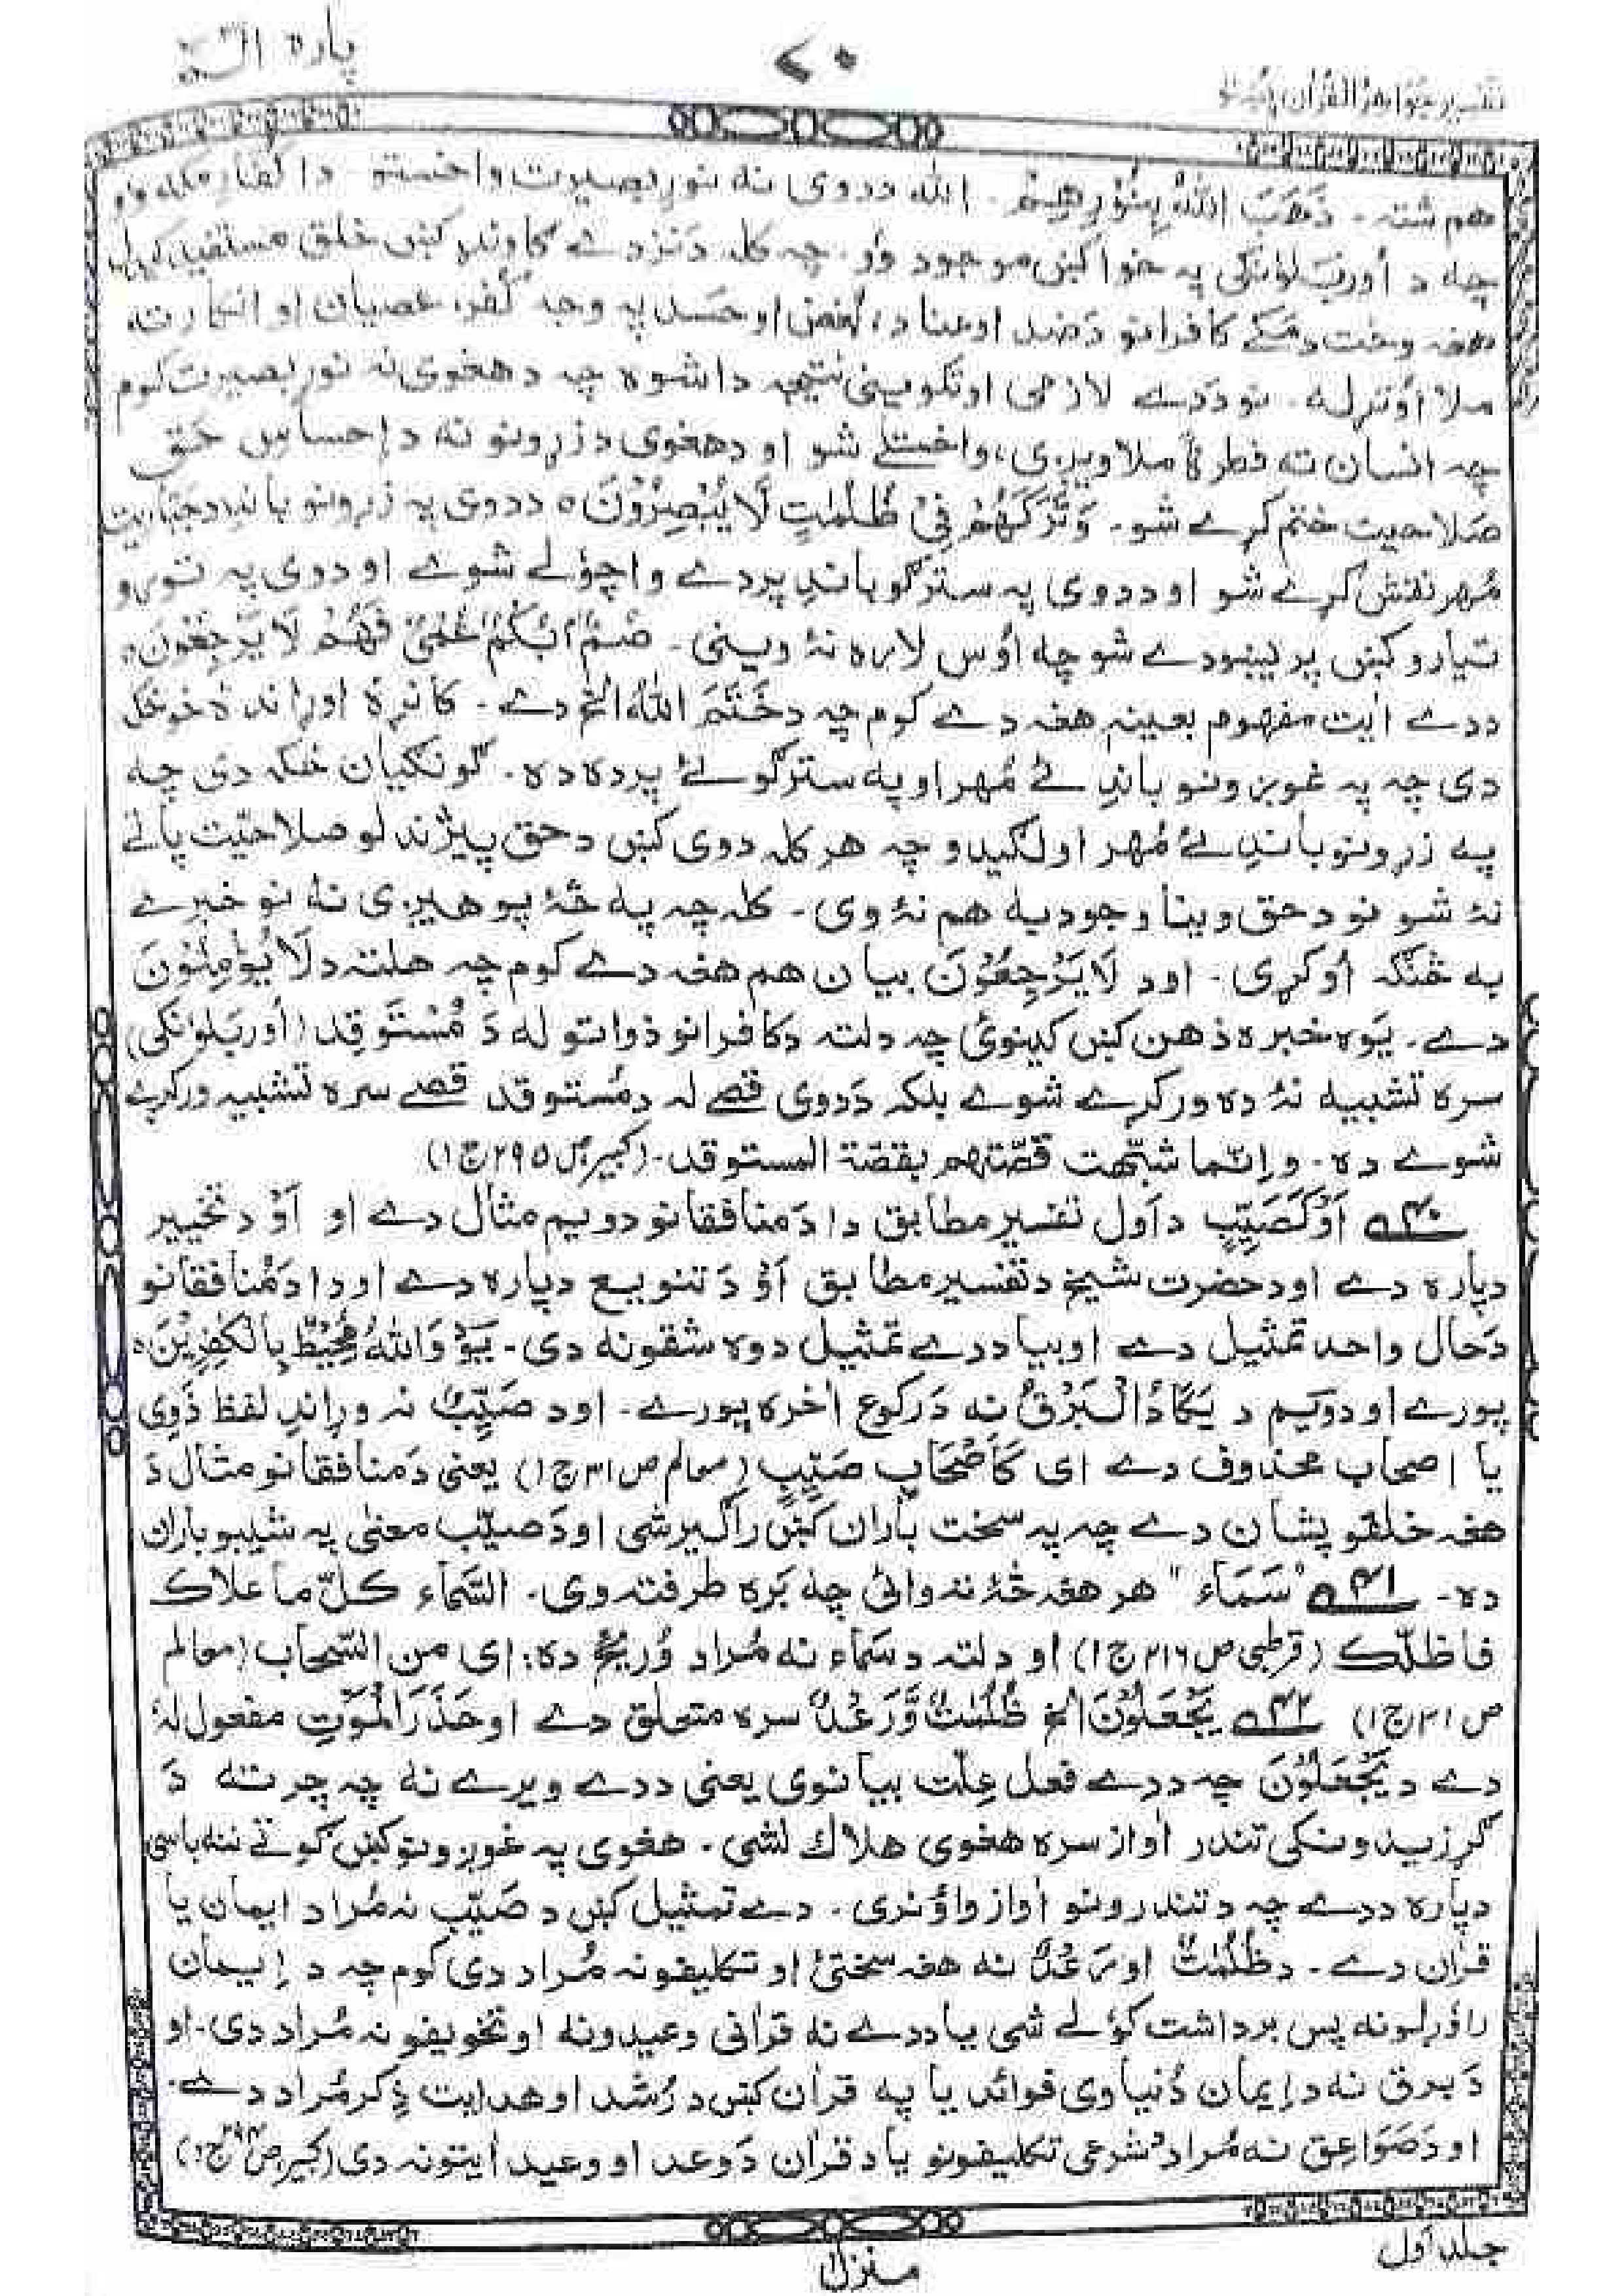 پاره الٓمّٓ
۷۰
تفسیر جواهر القرآن پښتو
هم شته۔ ذَهَبَ اللّٰهُ بِنُوْرِهِمْ۔ الله ددوی نه نور بصیرت واخستو دا کفار مکه وو
چه د اُور بَلوُنکی په خوا کښ موجود وُو۔ چه کله دَ نزدے کاوندِ کښ خلق مستفیض
هغه وخت د مکّے کافرانو دَ ضد او عناد، بُغض او حَسَد په وجه کُفر، عصیان او انکار ته
ملا اُوتړله۔ نو دَدے لازمی او تکوینی نتیجه دا شوه چه د هغوی نه نور بصیرت کوم
چه انسان ته فطرتًا ملاویږی، واخستلے شو او دهغوی د زړونو نه د اِحساسِ حَق
صَلاحیت ختم کړے شو۔ وَتَرَكَهُمْ فِيْ ظُلُمٰتٍ لَّا يُبْصِرُوْنَ ٥ ددوی په زړونو باندِ د جبّاریت
مُهر نقش کړے شو او ددوی په سترګو باندِ پردے واچولے شوے او دوی په تورو
تیارو کښ پریښودے شو چه اُوس لاره نهٔ وینی۔ صُمٌّۢ بُكْمٌ عُمْيٌ فَهُمْ لَا يَرْجِعُوْنَ ٥
ددے ایت مفهوم بعینهٖ هغه دے کوم چه د خَتَمَ اللّٰهُ الخ دے۔ کانړهٔ او ړاندهٔ خو ځکه
دی چه په غوږونو باندِ ئے مُهر او په سترګو ئے پرده ده۔ ګونګیان ځکه دی چه
په زړونو باندِ ئے مُهر اولګیدو چه هر کله دوی کښ د حق پیژندلو صلاحیّت پاتے
نهٔ شو نو د حق وینا وجود به هم نهٔ وی۔ کله چه په څهٔ پوهیږی نه نو خبرے
به څنګه اُوکړی۔ او د لَا يَرْجِعُوْنَ بیان هم هغه دے کوم چه هلته د لَا يُؤْمِنُوْنَ
دے۔ یَوه خبره ذهن کښ کینوئ چه دلته د کافرانو ذواتو له دَ مُسْتَوقِد (اُور بَلوُنکی)
سره تشبیه نهٔ ده ورکړے شوے بلکه دَدوی قِصے له دمُستوقد قِصے سره تشبیه ورکړے
شوے ده۔ وانّما شبّهت قصّتهم بقصّة المستوقد۔ (کبیر ص ۲۹۵ ج ۱)
۴۰؎ اَوْ كَصَيِّبٍ د اَول تفسیر مطابق دا دَ منافقانو دویم مثال دے او اَوْ د تخییر
دپاره دے او د حضرت شیخ د تفسیر مطابق اَوْ دَ تنویع دپاره دے او دا دَ مُنافقانو
دَ حال واحد تمثیل دے او بیا ددے تمثیل دوه شقونه دی۔ یَو وَاللّٰهُ مُحِيْطٌۢ بِالْكٰفِرِيْنَ ٥
پورے او دوَیم د يَكَادُ الْبَرْقُ نه دَ رکوع اٰخره پورے۔ او د صَيِّبٌ نه وړاندِ لفظ ذَوِي
یا اصحاب محذوف دے ای كَاَصْحَابِ صَيِّبٍ (معالم ص ۳۱ ج ۱) یعنی دَ منافقانو مثال دَ
هغه خلقو پشان دے چه په سخت باران کښ راګیر شی او دَ صیّب معنیٰ په شیبو باران
ده۔ ۴۱؎ "سَمَاء" هر هغه څهٔ ته وائی چه بَره طرفته وی۔ السّماء کلّ ما علاك
فاظلّك (قرطبی ص ۲۱۶ ج ۱) او دلته د سَماء نه مُراد وُریځ ده: ای من السّحاب (معالم
ص ۳۱ ج ۱) ۴۲؎ يَجْعَلُوْنَ الخ ظُلُمٰتٌ وَّرَعْدٌ سره متعلق دے او حَذَرَ الْمَوْتِ مفعول لهٗ
دے د يَجْعَلُوْنَ چه ددے فعل عِلّت بیانوی یعنی ددے ویرے نه چه چرته دَ
ګرزیدونکی تندر اواز سره هغوی هلاك نشی۔ هغوی په غوږونو کښ ګوتے ننه باسی
دپاره ددے چه د تندرونو اٰواز وانهٔ وری۔ دے تمثیل کښ د صَيِّب نه مُراد ایمان یا
قرٰان دے۔ د ظُلُمٰتٌ او رَعْدٌ نه هغه سختیٔ او تکلیفونه مُراد دی کوم چه د اِیمان
راوړلو نه پس برداشت کولے شی یا ددے نه قرآنی وعیدونه او تخویفونه مُراد دی۔ او
دَ برق نه د اِیمان دُنیاوی فوائد یا په قرٰان کښ د رُشد او هدایت ذِکر مُراد دے۔
او دَ صَوَاعِق نه مُراد شرعی تکلیفونو یا د قرٰان دَ وعد او وعید اٰیتونه دی (کبیر ص ۲۹۴ ج ۱)
جلد اوّل
منزل